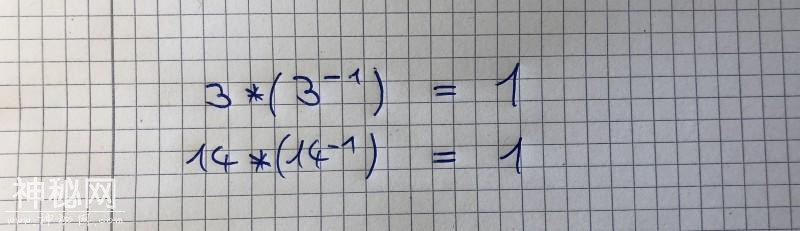 3 * (3⁻¹) = 1
14 * (14⁻¹) = 1
神秘网